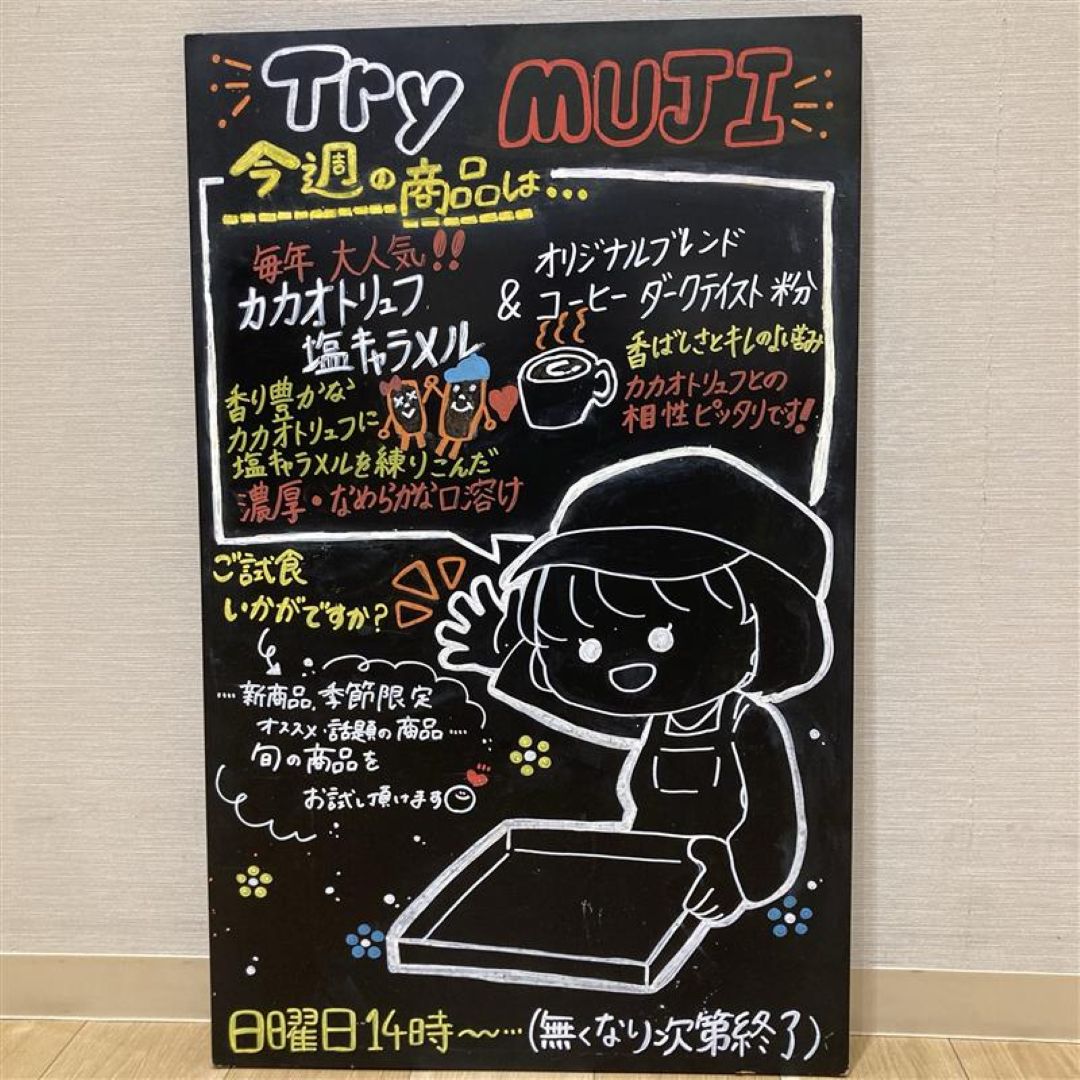 Try MUJI
今週の商品は…
毎年 大人気!!
カカオトリュフ
塩キャラメル
香り豊かな
カカオトリュフに
塩キャラメルを練りこんだ
濃厚・なめらかな口溶け
オリジナルブレンド
& コーヒー ダークテイスト 粉
香ばしさとキレのよい苦み
カカオトリュフとの
相性ピッタリです!
ご試食
いかがですか?
…新商品、季節限定
オススメ・話題の商品…
旬の商品を
お試し頂けます
日曜日14時〜〜…(無くなり次第終了)